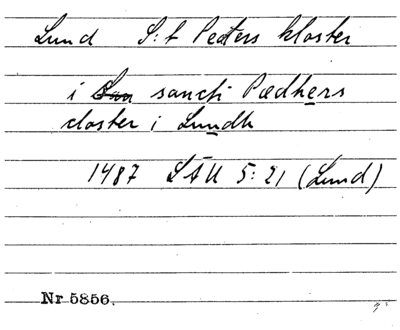 Lund S:t Peters kloster
i sancti Pædhers
closter i Lundh
1487 LÄU 5:21 (Lund)
Nr 5856.